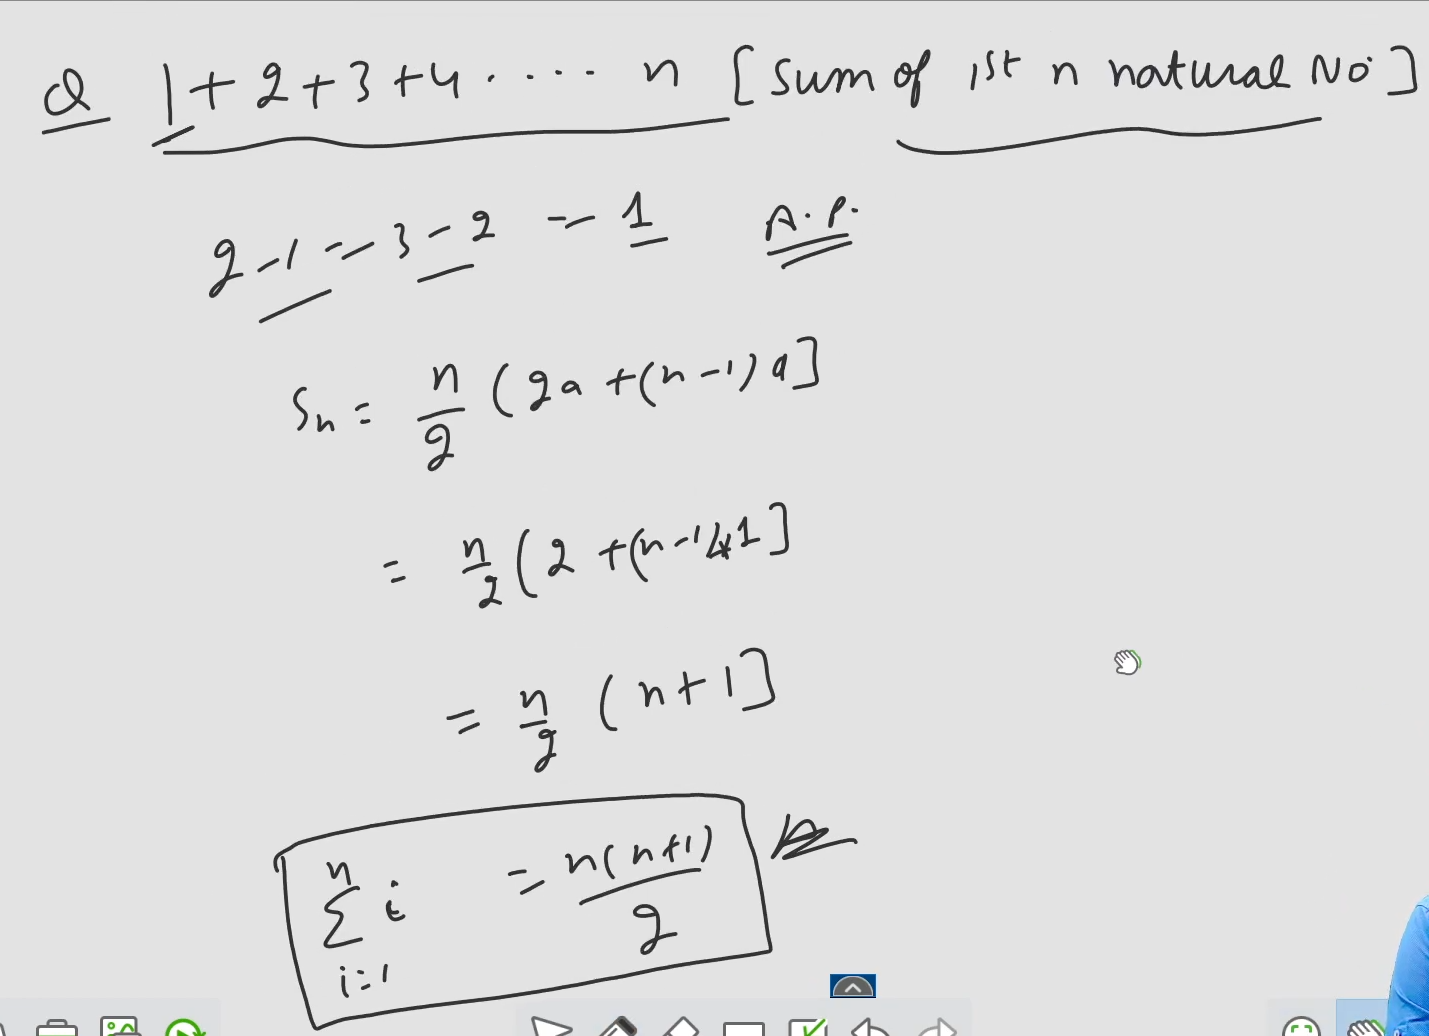 Q 1+2+3+4 . . . . . n [Sum of 1st n natural No]
2-1 = 3-2 = 1 A.P.
Sn = n/2 (2a+(n-1)d]
= n/2 (2 +(n-1)*1]
= n/2 (n+1]
n∑i=1 i = n(n+1)/2